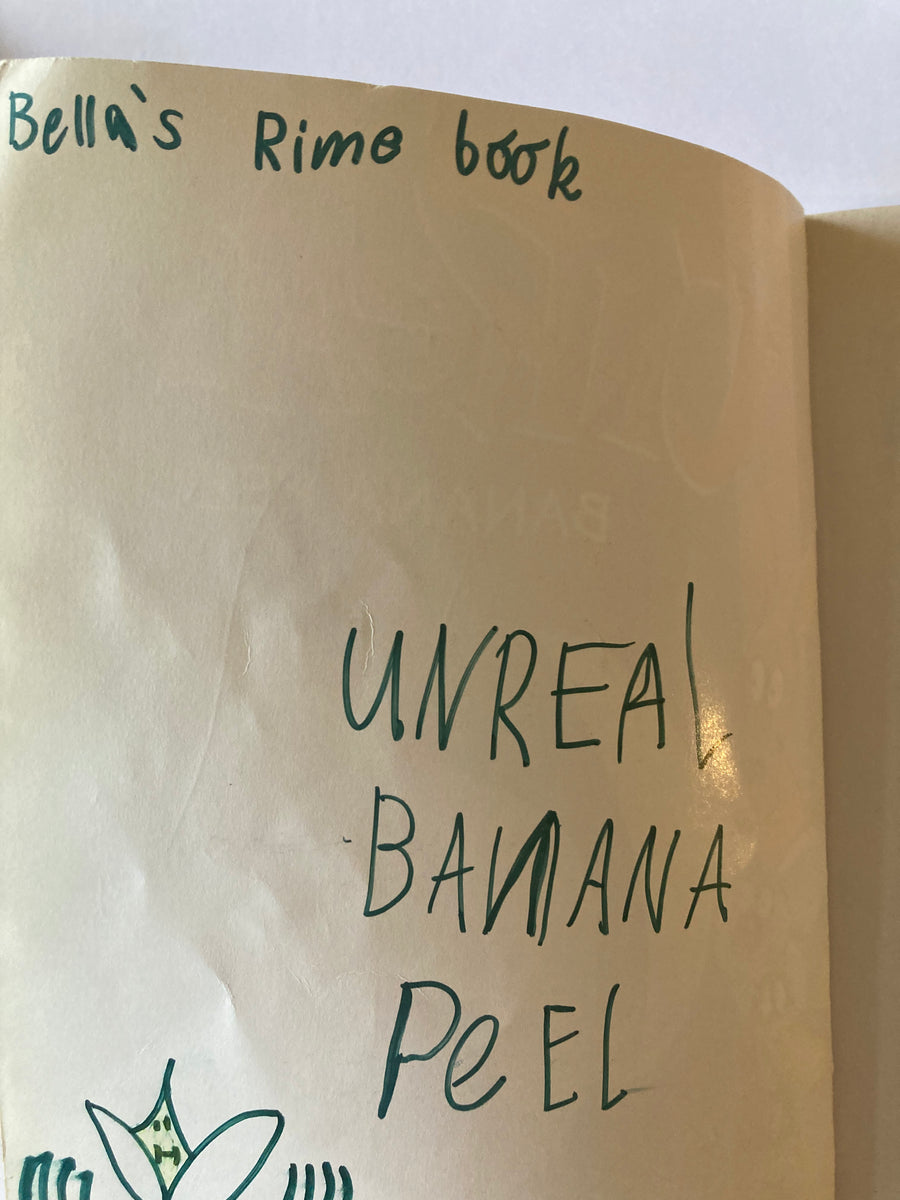 Bella's Rime book
UNREAL
BANANA
PeEL